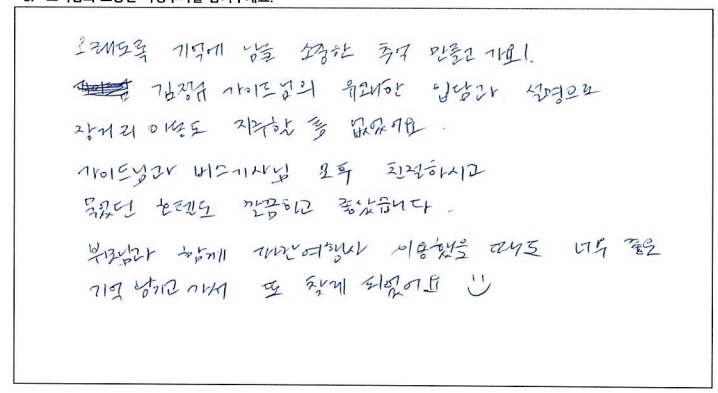 오래도록 기억에 남을 소중한 추억 만들고 가요!.
김정규 가이드님의 유쾌한 입담과 설명으로
장거리 이동도 지루할 틈 없었어요.
가이드님과 버스기사님 모두 친절하시고
묵었던 호텔도 깔끔하고 좋았습니다.
부모님과 함께 여행사 이용했을 때도 너무 좋은
기억 남기고 가서 또 찾게 되었어요